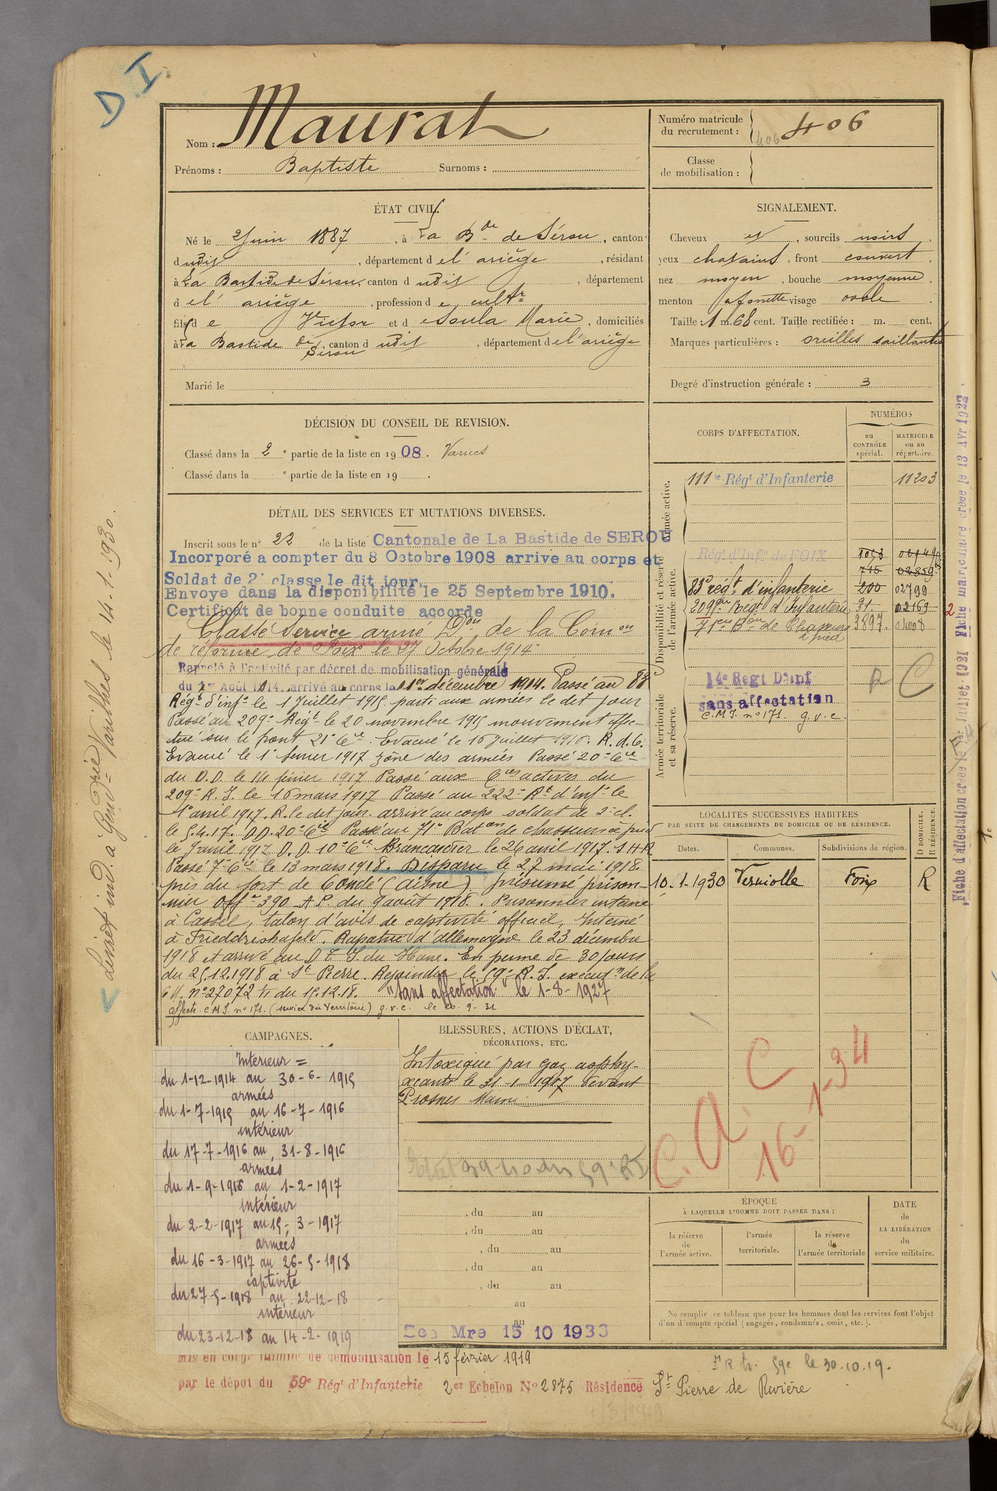 D I
Nom : Maurat
Prénoms : Baptiste Surnoms :
Numéro matricule
du recrutement : 406 406
Classe
de mobilisation :
ÉTAT CIVIL.
Né le 2 Juin 1887, à La B.de de Sérou, canton
dudit, département de l'ariège, résidant
à La Bastide de Sérou, canton dudit, département
de l'ariège, profession de cultr
fils de Victor et de Soula Marie, domiciliés
à La Bastide de Sérou, canton dudit, département de l'ariège
Marié le
SIGNALEMENT.
Cheveux et, sourcils noirs
yeux chatains, front couvert
nez moyen, bouche moyenne
menton à fossette visage ovale
Taille : 1 m. 68 cent. Taille rectifiée : m. cent.
Marques particulières : oreilles saillantes
Degré d'instruction générale : 3
DÉCISION DU CONSEIL DE REVISION.
Classé dans la 2e partie de la liste en 1908. Varices
Classé dans la e partie de la liste en 19 .
DÉTAIL DES SERVICES ET MUTATIONS DIVERSES.
Inscrit sous le n° 22 de la liste Cantonale de La Bastide de SEROU
Incorporé a compter du 8 Octobre 1908 arrive au corps et
Soldat de 2e classe le dit jour.
Envoye dans la disponibilité le 25 Septembre 1910.
Certificat de bonne conduite accorde
Classé Service armé Don de la Comon
de réforme de Foix le 27 Octobre 1914
Rappelé à l'activité par décret de mobilisation générale
du 1er Août 1914. arrivé au corps le 1er décembre 1914. Passé au 88e
Régt d'infie le 1 Juillet 1915 parti aux armées le dit jour
Passé au 209e Régt le 20 novembre 1915 mouvement effec-
tué sur le front 21e Cie. Evacué le 16 Juillet 1916. R.d.C.
Evacué le 1 février 1917 zône des armées Passé 20e Cie
du D.D. le 14 février 1917 Passé aux Cies actives du
209e R.I. le 16 mars 1917 Passé au 222e Rt d'infie le
1er avril 1917. R. le dit jour. arrivé au corps soldat de 2e cl.
le 5.4.17. D.D. 20e Cie Passé au 71e Baton de chasseurs à pied
le 9 avril 1917 D.D. 10e Cie Brancardier le 26 avril 1917. S.H.R
Passé 7e Cie le 13 mars 1918. Disparu le 27 mai 1918
près du fort de Condé (Aisne) présumé prison-
nier Offel 390 A.P. du 9 aout 1918. Prisonnier interné
à Cassel, talon d'avis de captivité officiel, Interné
à Frieddrishsfeld. Rapatrié d'allemagne le 23 décembre
1918 et arrivé au D.T.I. du Havre. En perme de 30 jours
du 25.12.1918 à St Pierre. Rejoindra le 59e R.I. exécution de la
C.M. n° 27072 du 15.12.18. "sans affectation" le 1-8-1927
affecté C.M.I. n° 171. g.v.c. le 20-9-31
CORPS D'AFFECTATION.
NUMÉROS
au
CONTRÔLE
spécial.
MATRICULE
ou au
répertoire.
Armée active.
111e Régt d'Infanterie 11203
Disponibilité et réserve
de l'armée active.
Régt d'Infie de FOIX
88e régt d'infanterie 200 02799
209ème Régt d'Infanterie 31 02169
71ème Bon de Chasseurs à pied 3897
Armée territoriale
et sa réserve.
14e Régt D'Inf
sans affectation
C.M.I. n° 171. g.v.c.
R C
LOCALITÉS SUCCESSIVES HABITÉES
PAR SUITE DE CHANGEMENTS DE DOMICILE OU DE RÉSIDENCE.
Dates.
Communes.
Subdivisions de région.
D DOMICILE.
R RÉSIDENCE.
10.1.1930 Verniolle Foix R
CAMPAGNES.
Intérieur =
du 1-12-1914 au 30-6-1915
armées
du 1-7-1915 au 16-7-1916
intérieur
du 17-7-1916 au 31-8-1916
armées
du 1-9-1916 au 1-2-1917
intérieur
du 2-2-1917 au 15-3-1917
armées
du 16-3-1917 au 26-5-1918
captivité
du 27-5-1918 au 22-12-18
intérieur
du 23-12-18 au 14-2-1919
BLESSURES, ACTIONS D'ÉCLAT,
DÉCORATIONS, ETC.
Intoxiqué par gaz asphy-
xiants le 31-1-1917 devant
Prosnes Marne
, du au
, du au
, du au
, du au
, du au
au
au
Deg Mre 15 10 1933
C
C.A.
16-1-34
ÉPOQUE
À LAQUELLE L'HOMME DOIT PASSER DANS :
la réserve
de
l'armée active.
l'armée
territoriale.
la réserve
de
l'armée territoriale
DATE
de
LA LIBÉRATION
du
service militaire.
Ne remplir ce tableau que pour les hommes dont les services font l'objet
d'un décompte spécial (engagés, condamnés, omis, etc.).
Mis en congé illimité de démobilisation le 15 février 1919
par le dépôt du 59e Régt d'Infanterie 2er Echelon N° 2875 Résidence St Pierre de Rivière
59e le 30.10.19.
le 14.1.1930.
Fiche matriculaire créée le 13 Avr 1922
Fiche d'affectation créée le Juillet 1921